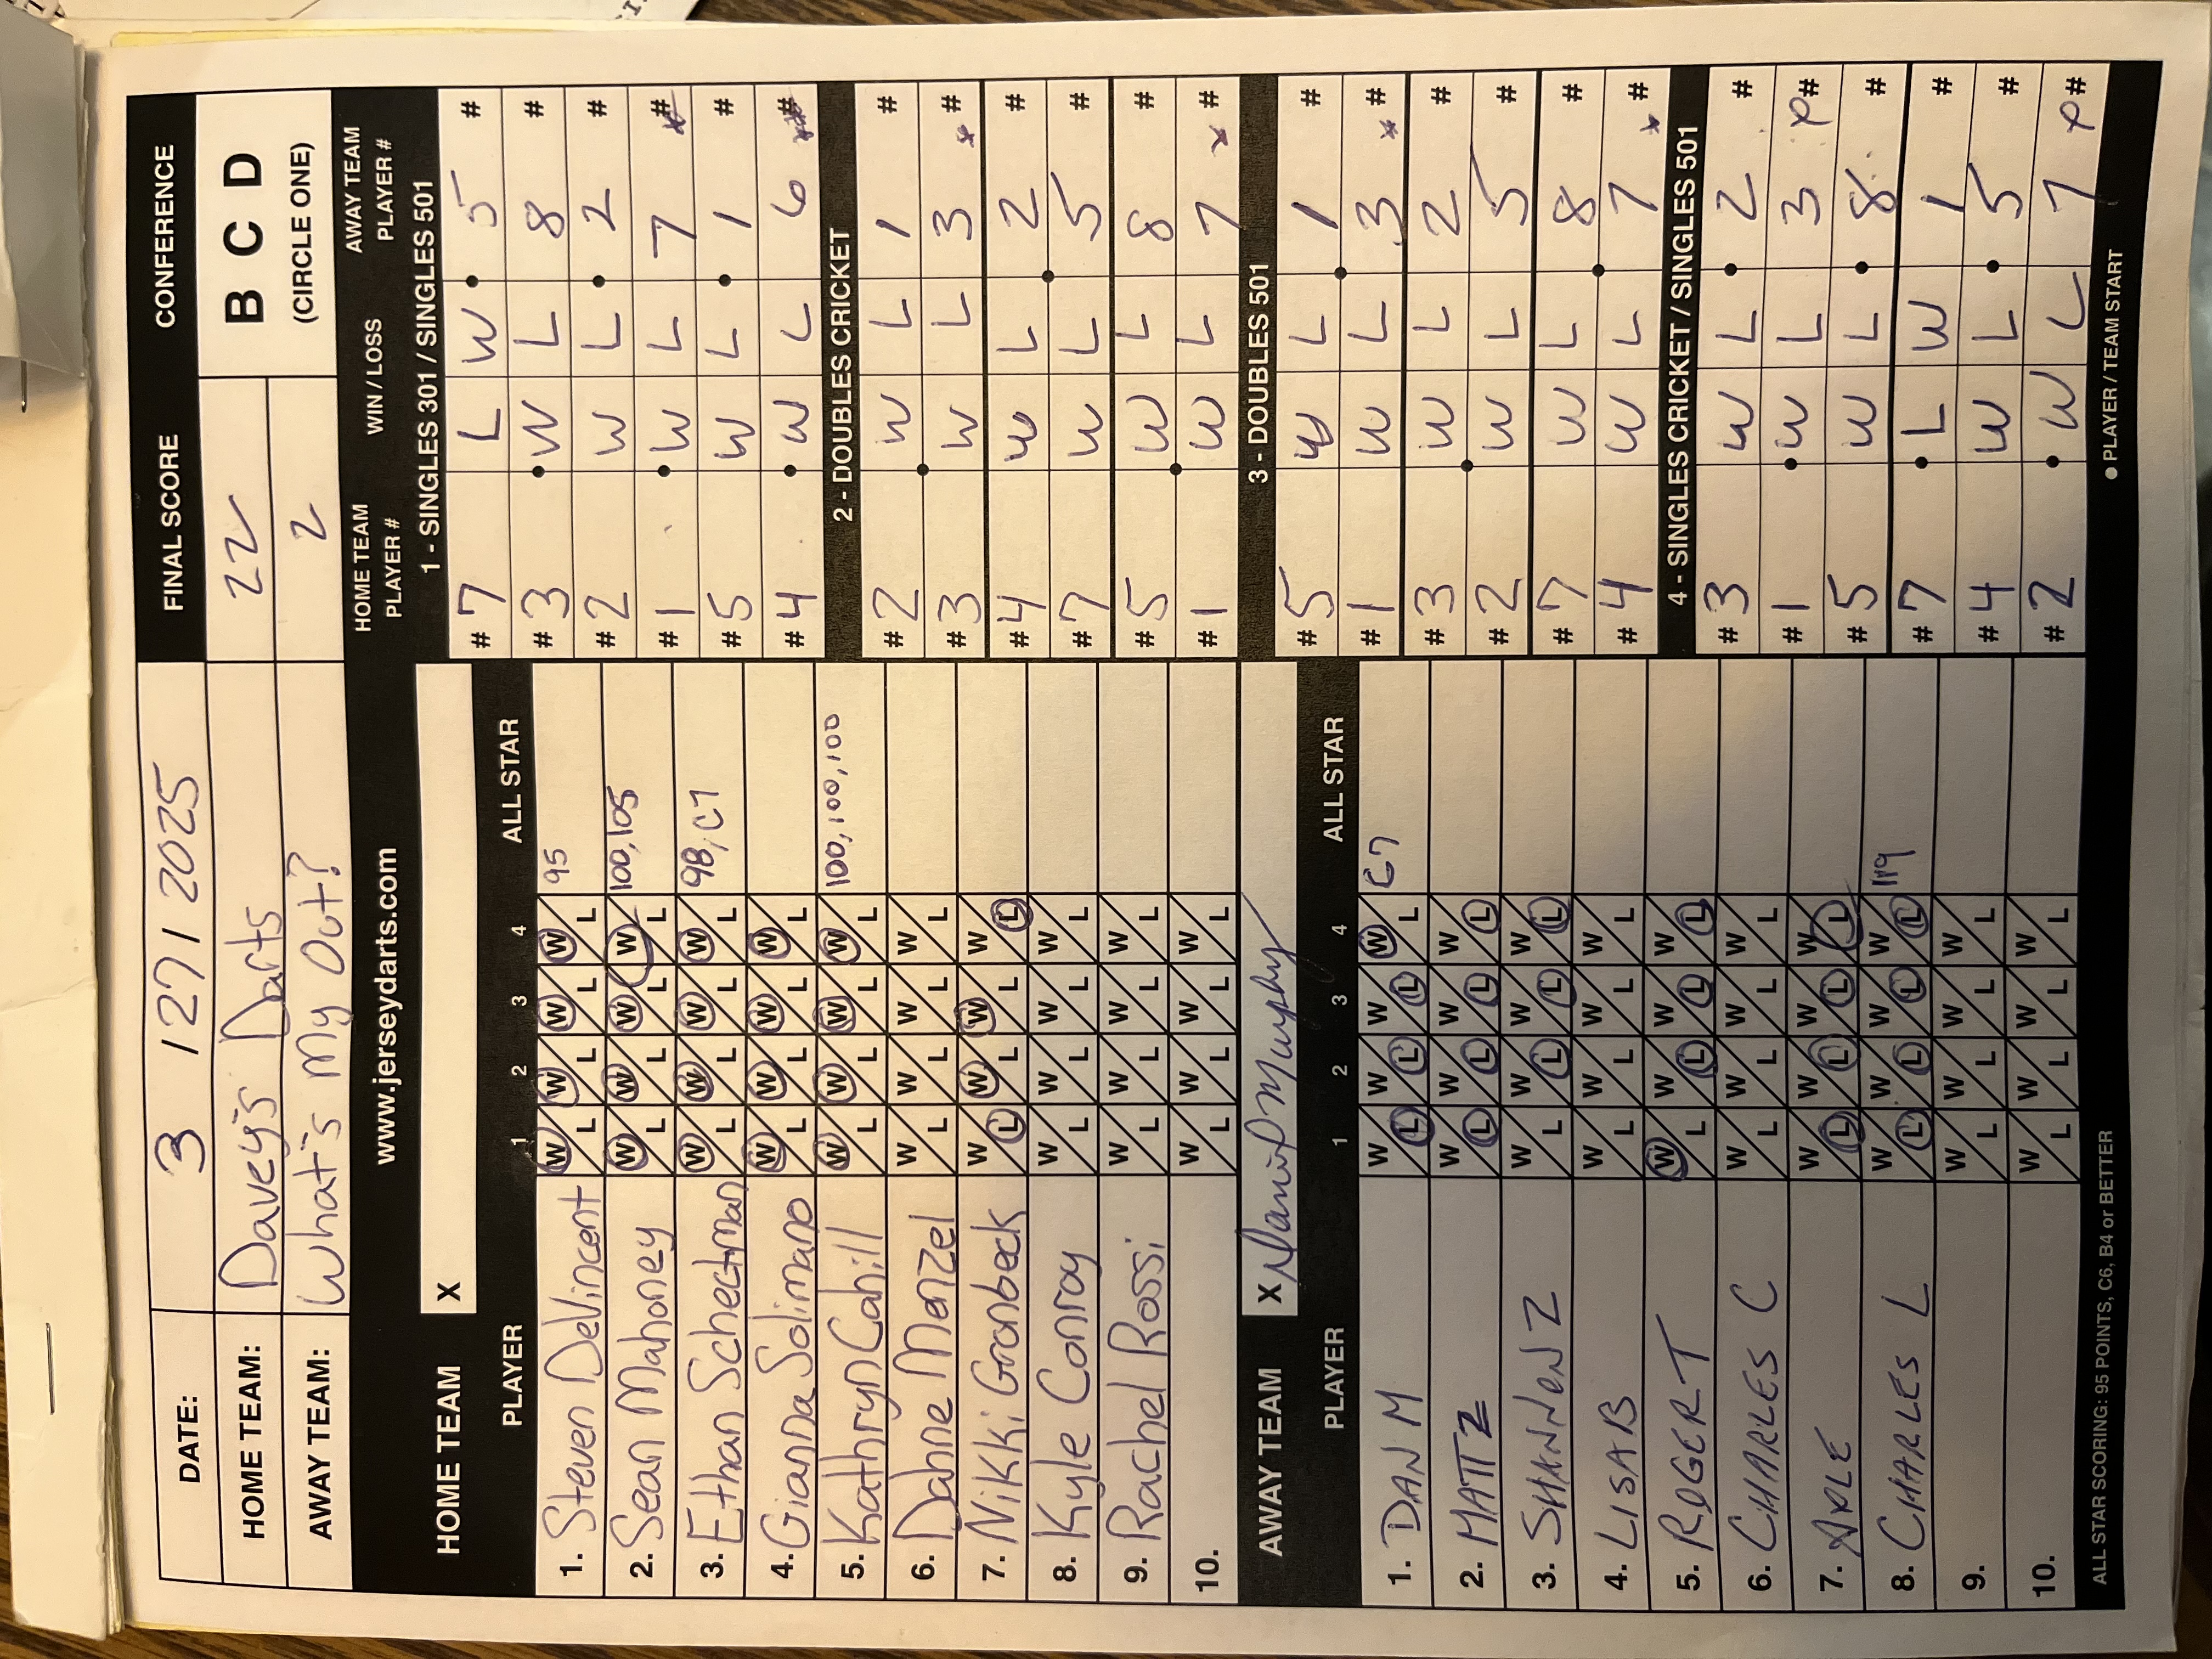 DATE: 3 / 27 / 2025 FINAL SCORE CONFERENCE
HOME TEAM: Davey's Darts 22 B C D
AWAY TEAM: What's My Out? 2 (CIRCLE ONE)
www.jerseydarts.com
HOME TEAM X
PLAYER 1 2 3 4 ALL STAR
1. Steven DeVincent W/L W/L W/L W/L 95
2. Sean Mahoney W/L W/L W/L W/L 100, 105
3. Ethan Schectman W/L W/L W/L W/L 98, C7
4. Gianna Solimano W/L W/L W/L W/L
5. Kathryn Cahill W/L W/L W/L W/L 100, 100, 100
6. Danne Menzel W/L W/L W/L W/L
7. Nikki Gronbeck W/L W/L W/L W/L
8. Kyle Conroy W/L W/L W/L W/L
9. Rachel Rossi W/L W/L W/L W/L
10. W/L W/L W/L W/L
AWAY TEAM X Daniel Murphy
PLAYER 1 2 3 4 ALL STAR
1. DAN M W/L W/L W/L W/L C7
2. MATT Z W/L W/L W/L W/L
3. SHANNON Z W/L W/L W/L W/L
4. LISA B W/L W/L W/L W/L
5. ROGER T W/L W/L W/L W/L
6. CHARLES C W/L W/L W/L W/L
7. W/L W/L W/L W/L
8. CHARLES L W/L W/L W/L W/L 119
9. W/L W/L W/L W/L
10. W/L W/L W/L W/L
ALL STAR SCORING: 95 POINTS, C6, B4 or BETTER
HOME TEAM PLAYER # WIN / LOSS AWAY TEAM PLAYER #
1 - SINGLES 301 / SINGLES 501
# 7 L W 5 #
# 3 W L 8 #
# 2 W L 2 #
# 1 W L 7 #
# 5 W L 1 #
# 4 W L 6 #
2 - DOUBLES CRICKET
# 2 W L 1 #
# 3 W L 3 * #
# 4 W L 2 #
# 7 W L 5 #
# 5 W L 8 #
# 1 W L 7 * #
3 - DOUBLES 501
# 5 W L 1 #
# 1 W L 3 * #
# 3 W L 2 #
# 2 W L 5 #
# 7 W L 8 #
# 4 W L 7 * #
4 - SINGLES CRICKET / SINGLES 501
# 3 W L 2 #
# 1 W L 3 #
# 5 W L 8 #
# 7 L W 1 #
# 4 W L 5 #
# 2 W L 7 #
● PLAYER / TEAM START